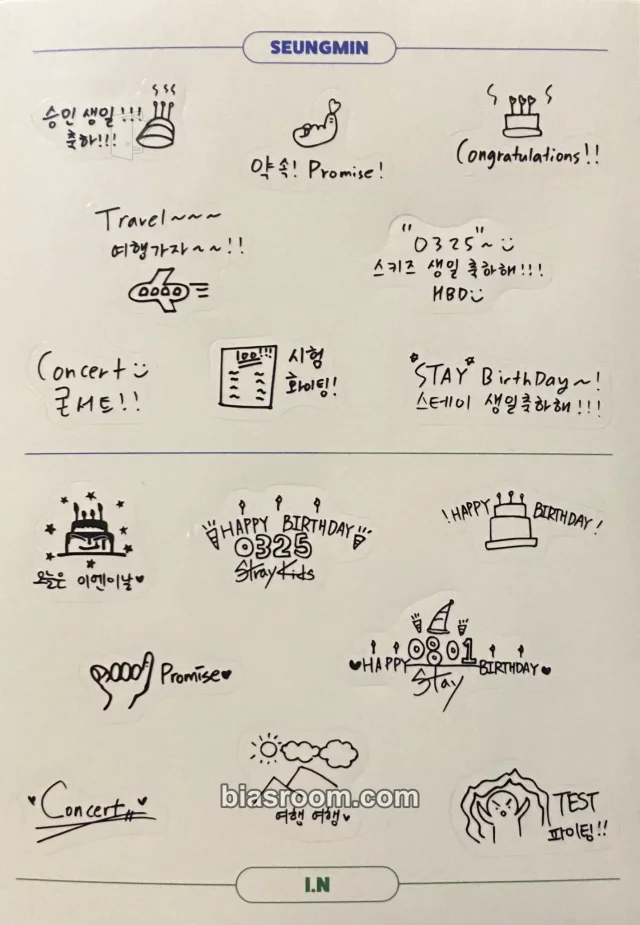 SEUNGMIN
승민 생일!!!
축하!!!
약속! Promise!
Congratulations!!
Travel~~~
여행가자~~!!
"0325"~
스키즈 생일 축하해!!!
HBD
Concert
콘서트!!
100!!!
시험
화이팅!
*STAY* BirthDay~!
스테이 생일축하해!!!
오늘은 아이엔이날♥
HAPPY BIRTHDAY
0325
Stray Kids
!HAPPY BIRTHDAY!
Promise♥
♥HAPPY 0801 BIRTHDAY♥
Stay
♥Concert♥
여행 여행♥
TEST
파이팅!!
biasroom.com
I.N